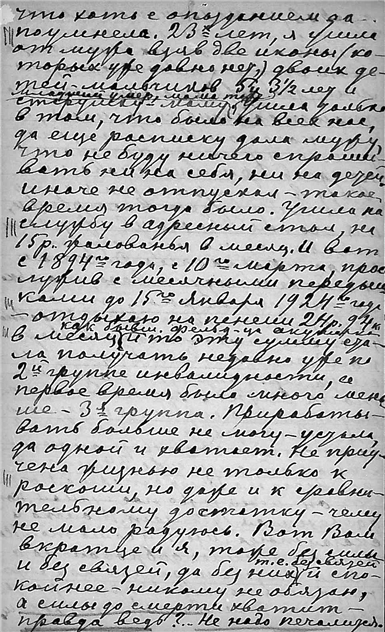 что хоть с опозданием да
поумнела. 23х лет, я ушла
от мужа взяв две иконы (ко-
торых уже давно нет,) двоих де-
тей мальчиков 5 и 3½ лет и
старушку маму, ушла только
в том, что было на всех нас,
да еще расписку дала мужу,
что не буду ничего спраши-
вать ни на себя, ни на детей
иначе не отпускал – такое
время тогда было. Ушла на
службу в адресный стол, на
15 р. жалованья в месяц. И вот
с 1894го года, с 10го марта, прос-
лужив с месячными передыш-
ками до 15го января 1924го года
– отдыхаю на пенсии 24 р.
как бывш. фельд-ца акушерка
в месяц и то эту сумму ста-
ла получать недавно уже по
2й группе инвалидности, а
первое время было много мень-
ше – 3я группа. Прирабаты-
вать больше не могу – устала,
да одной и хватает. Не приу-
чена жизнью не только к
роскоши, но даже и к сравни-
тельному достатку – чему
не мало радуюсь. Вот Вам
вкратце и я, тоже без силы
т.е. без связей
и без связей, да без них и спо-
койнее – никому не обязан,
а силы до смерти хватит –
правда ведь?.. Не надо печалиться.